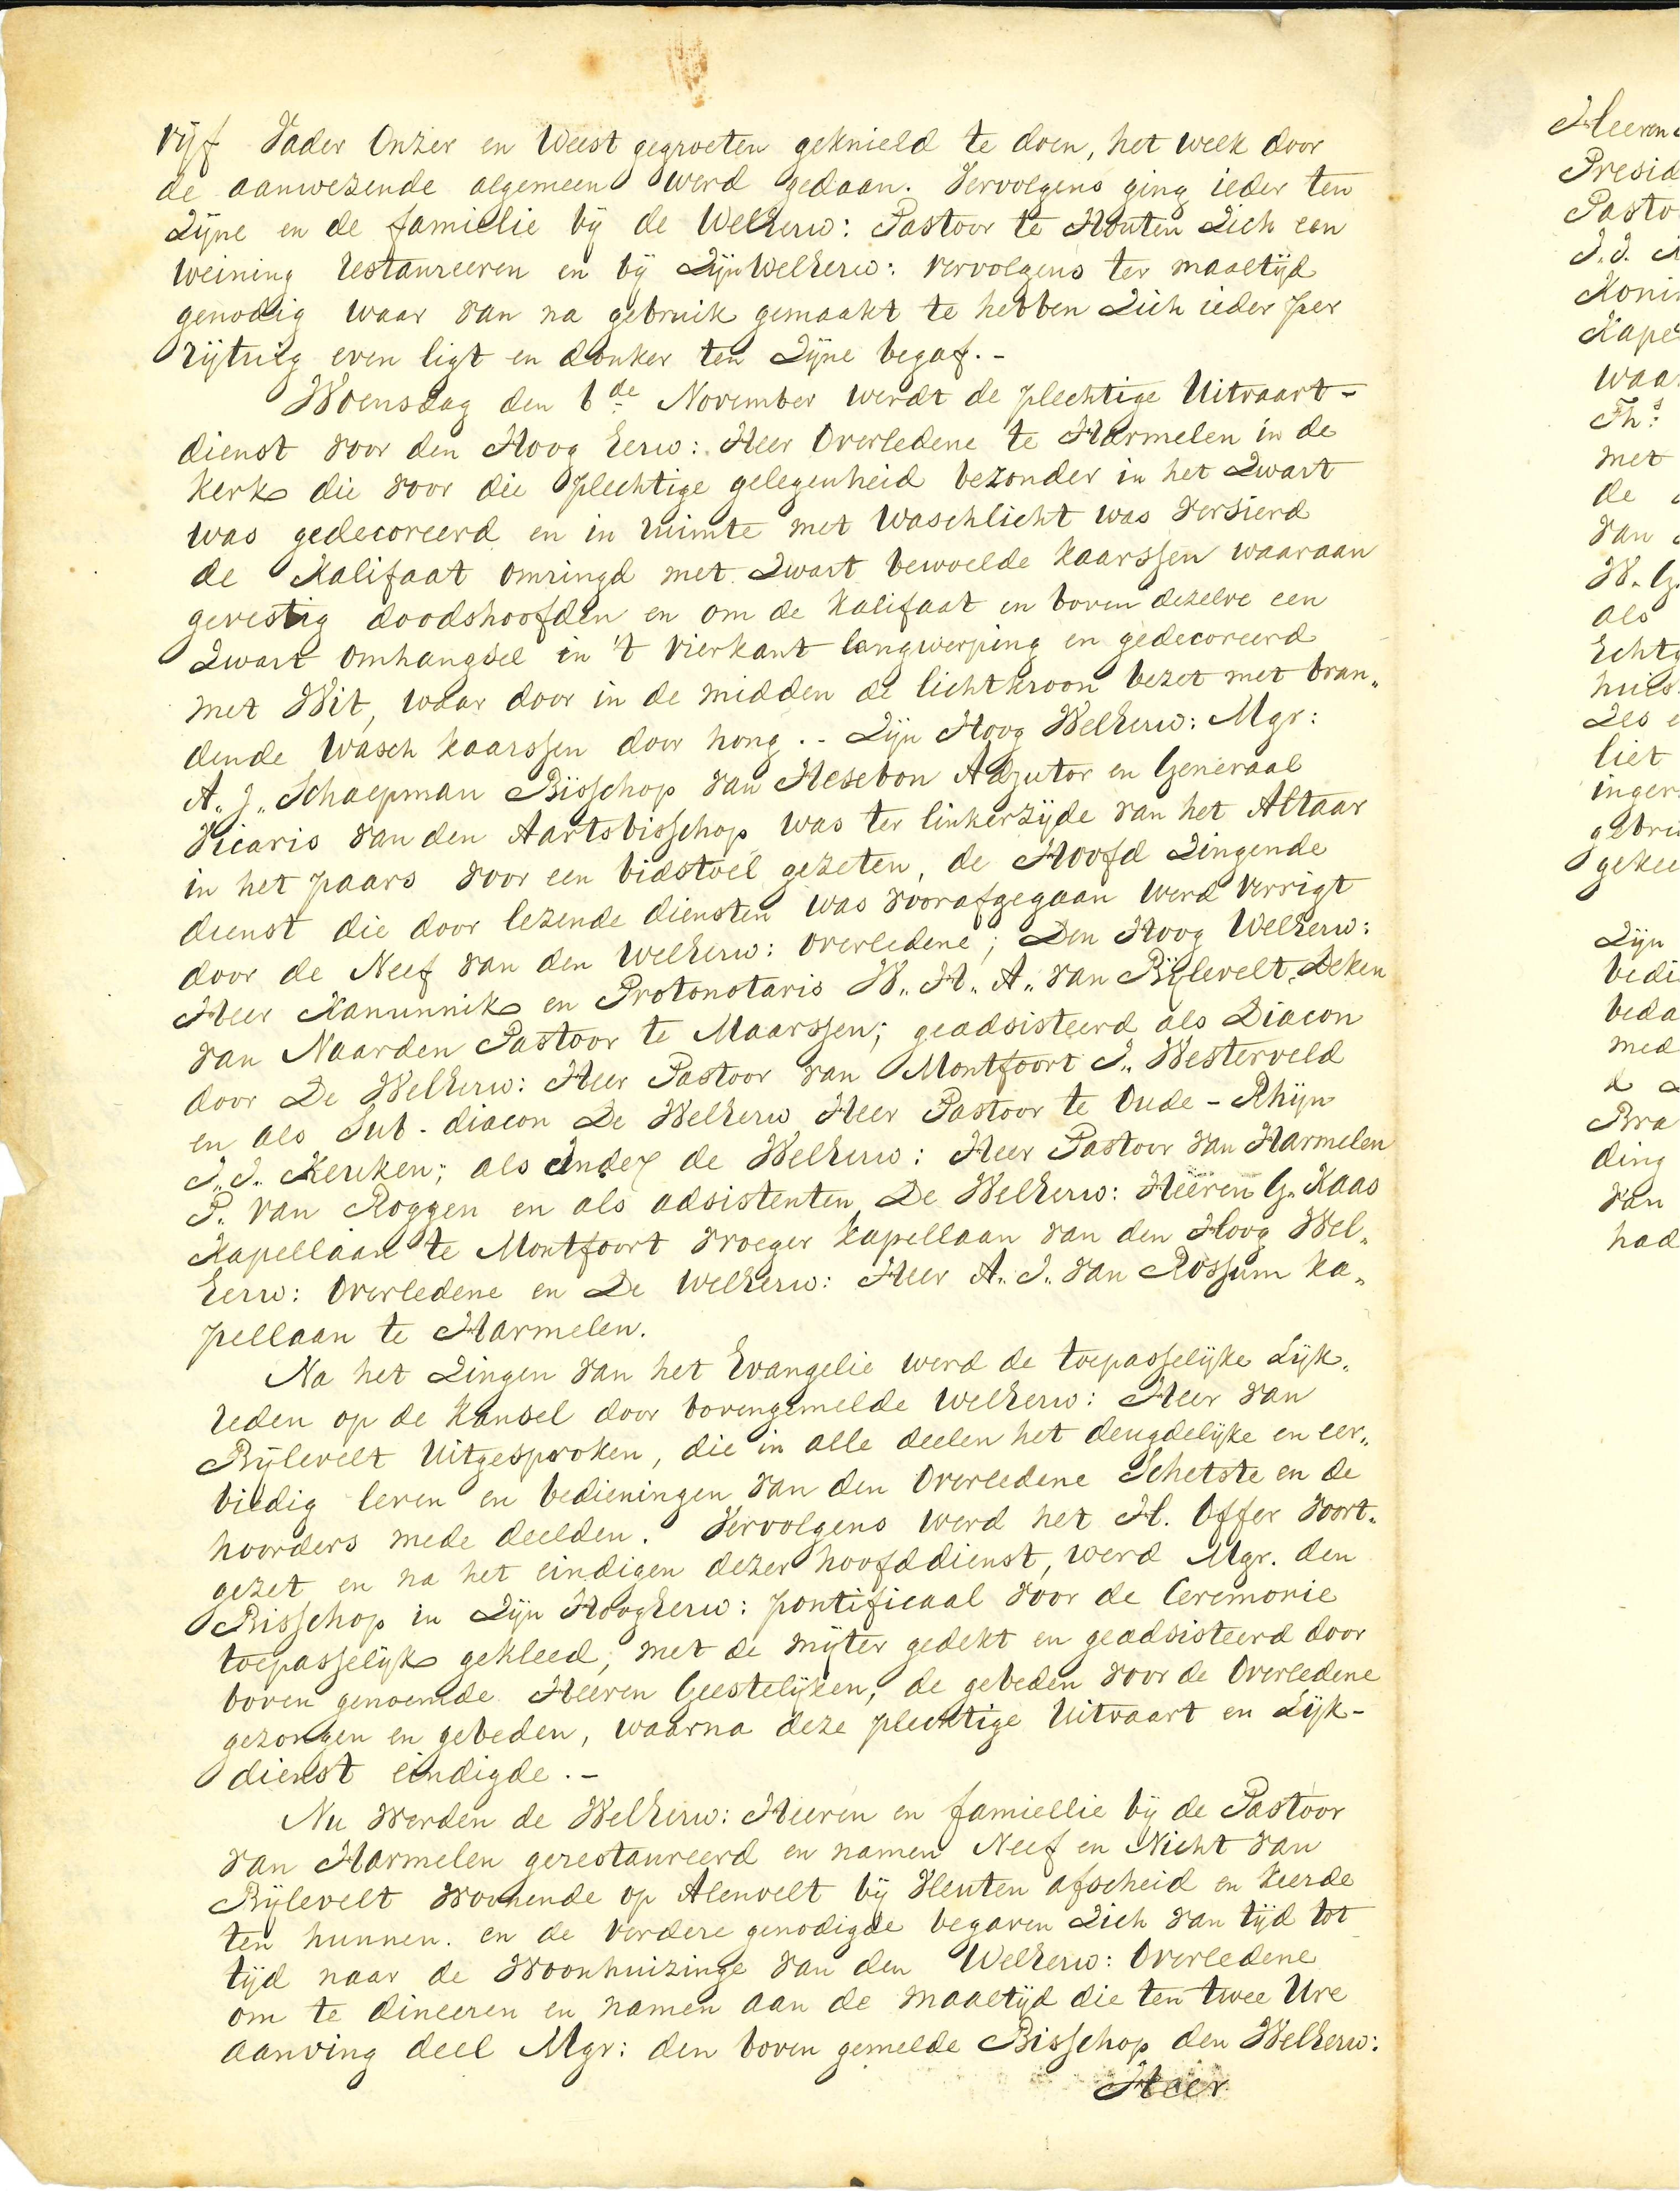 vijf Vader Onzer en Weest gegroeten geknield te doen, het welk door
de aanwezende algemeen werd gedaan. Vervolgens ging ieder ten
Zijne en de familie bij de WelEerw: Pastoor te Houten Zich een
weining restaureeren en bij ZijnWelEerw: vervolgens ter maaltijd
genodig waar van na gebruik gemaakt te hebben Zich ieder per
rijtuig even ligt en donker ten Zijne begaf. -
Woensdag den 6de November werdt de plechtige Uitvaart-
dienst voor den Hoog Eerw: Heer Overledene te Harmelen in de
kerk die voor die plechtige gelegenheid bezonder in het Zwart
was gedecoreerd en in ruimte met Waschlicht was versierd
de Kalifaat omringd met Zwart bewoelde kaarssen waaraan
gevestig doodshoofden en om de Kalifaat en boven dezelve een
Zwart omhangsel in 't vierkant langwerping en gedecoreerd
met Wit, waar door in de midden de lichtkroon bezet met bran„
dende wasch kaarssen door hong. - Zijn Hoog WelEerw: Mgr:
A„ J„ Schaepman Bisschop van Hesebon Adjutor en Generaal
Vicaris van den Aartsbisschop was ter linkerzijde van het Altaar
in het paars voor een bidstoel gezeten, de Hoofd Zingende
dienst die door lezende diensten was voorafgegaan werd verrigt
door de Neef van den WelEerw: overledene; Den Hoog WelEerw:
Heer Kanunnik en Protonotaris W„ H„ A„ van Bijlevelt Deken
van Naarden Pastoor te Maarssen; geadsisteerd als Diacon
door De WelEerw: Heer Pastoor van Montfoort J„ Westerveld
en als Sub-diacon De WelEerw Heer Pastoor te Oude-Rhijn
J„ J„ Kerken; als Index de WelEerw: Heer Pastoor van Harmelen
P. van Roggen en als adsistenten De WelEerw: Heeren G. Kaas
Kapellaan te Montfoort vroeger kapellaan van den Hoog Wel„
Eerw: Overledene en De WelEerw: Heer A„ J„ van Rossum ka„
pellaan te Harmelen.
Na het Zingen van het Evangelie werd de toepasselijke Lijk„
reden op de kansel door bovengemelde WelEerw: Heer van
Bijlevelt Uitgesproken, die in alle deelen het deugdelijke en eer„
biedig leven en bedieningen van den Overledene Schetste en de
hoorders mede deelden. Vervolgens werd het H. Offer voort„
gezet en na het eindigen dezer hoofddienst, werd Mgr. den
Bisschop in Zijn HoogEerw: pontificaal voor de Ceremonie
toepasselijk gekleed, met de mijter gedekt en geadsisteerd door
boven genoemde Heeren Geestelijken, de gebeden voor de Overledene
gezongen en gebeden, waarna deze plechtige Uitvaart en Lijk-
dienst eindigde. -
Nu werden de WelEerw: Heeren en famiellie bij de Pastoor
van Harmelen gerestaureerd en namen Neef en Nicht van
Bijlevelt woonende op Alenvelt bij Vleuten afscheid en keerde
ten hunnen. en de verdere genodigde begaven Zich van tijd tot
tijd naar de Woonhuizinge van den WelEerw: Overledene
om te dineeren en namen aan de maaltijd die ten twee Ure
aanving deel Mgr: den boven gemelde Bisschop den WelEerw:
Heer
Heeren
Presid
Pasto
J.J.
Konin
Kapel
waa
Ths:
met
de
van
W. G.
als
Echtg
huis
Zes
liet
inger
gebru
gekee
Zijn
bedi
beda
med
Bra
ding
van
had